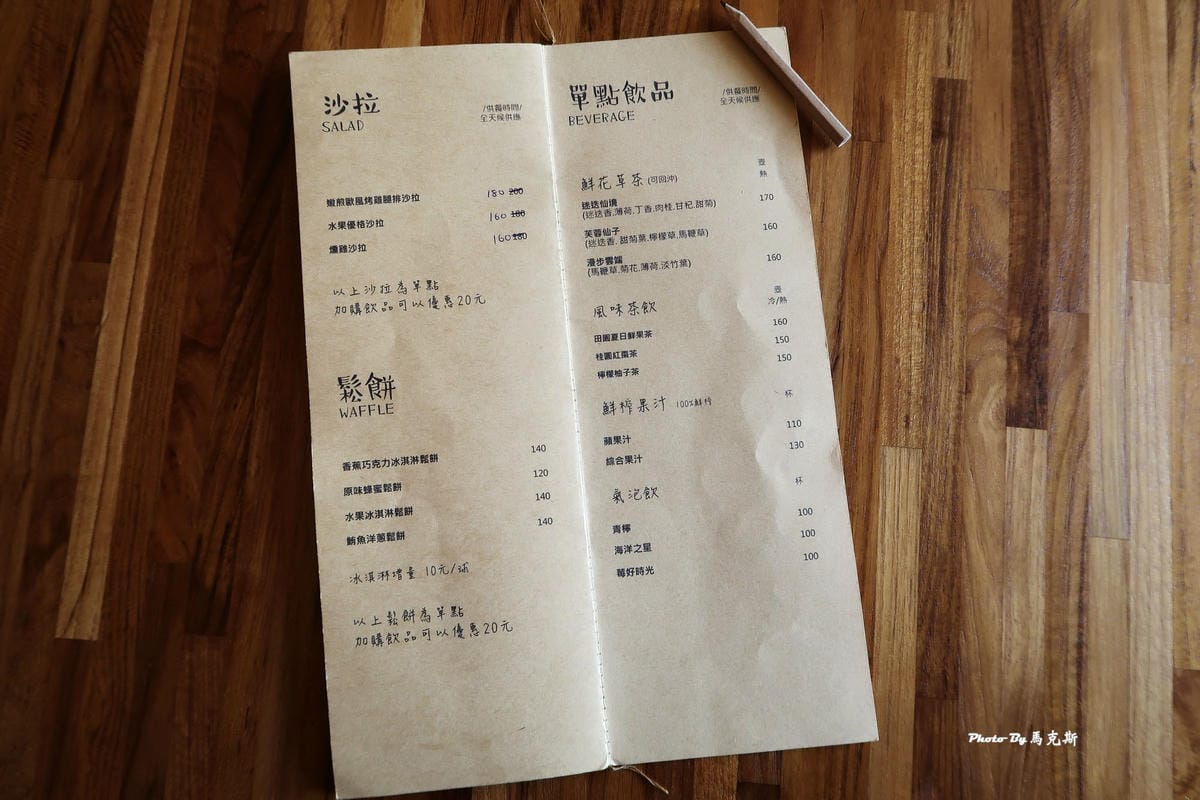 沙拉
SALAD
/供餐時間/
全天候供應
嫩煎歐風烤雞腿排沙拉 180 200
水果優格沙拉 160 180
燻雞沙拉 160 180
以上沙拉為單點
加購飲品可以優惠20元
鬆餅
WAFFLE
香蕉巧克力冰淇淋鬆餅 140
原味蜂蜜鬆餅 120
水果冰淇淋鬆餅 140
鮪魚洋蔥鬆餅 140
冰淇淋增量 10元/球
以上鬆餅為單點
加購飲品可以優惠20元
單點飲品
BEVERAGE
/供餐時間/
全天候供應
壺
鮮花草茶 (可回沖) 熱
迷迭仙境 170
(迷迭香.薄荷.丁香.肉桂.甘杞.甜菊)
芙蓉仙子 160
(迷迭香. 甜菊葉.檸檬草.馬鞭草)
漫步雲端 160
(馬鞭草.菊花.薄荷.淡竹葉)
壺
風味茶飲 冷/熱
田園夏日鮮果茶 160
桂圓紅棗茶 150
檸檬柚子茶 150
鮮榨果汁 100%鮮榨 杯
蘋果汁 110
綜合果汁 130
氣泡飲 杯
青檸 100
海洋之星 100
莓好時光 100
Photo By 馬克斯